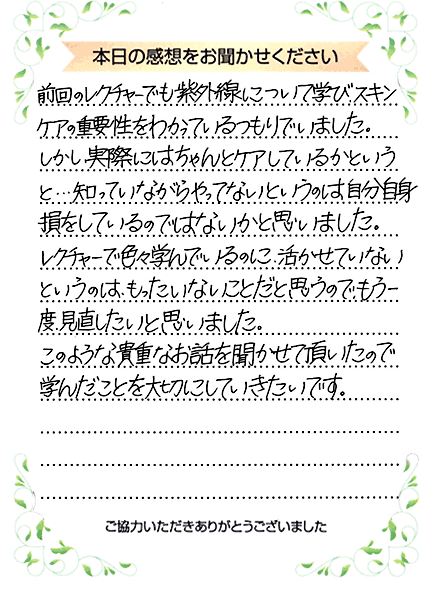 本日の感想をお聞かせください
前回のレクチャーでも紫外線について学び、スキン
ケアの重要性をわかっているつもりでいました。
しかし、実際にはちゃんとケアしているかという
と…知っていながらやってないというのは自分自身
損をしているのではないかと思いました。
レクチャーで色々学んでいるのに、活かせていない
というのは、もったいないことだと思うので、もう一
度見直したいと思いました。
このような貴重なお話を聞かせて頂いたので
学んだことを大切にしていきたいです。
ご協力いただきありがとうございました